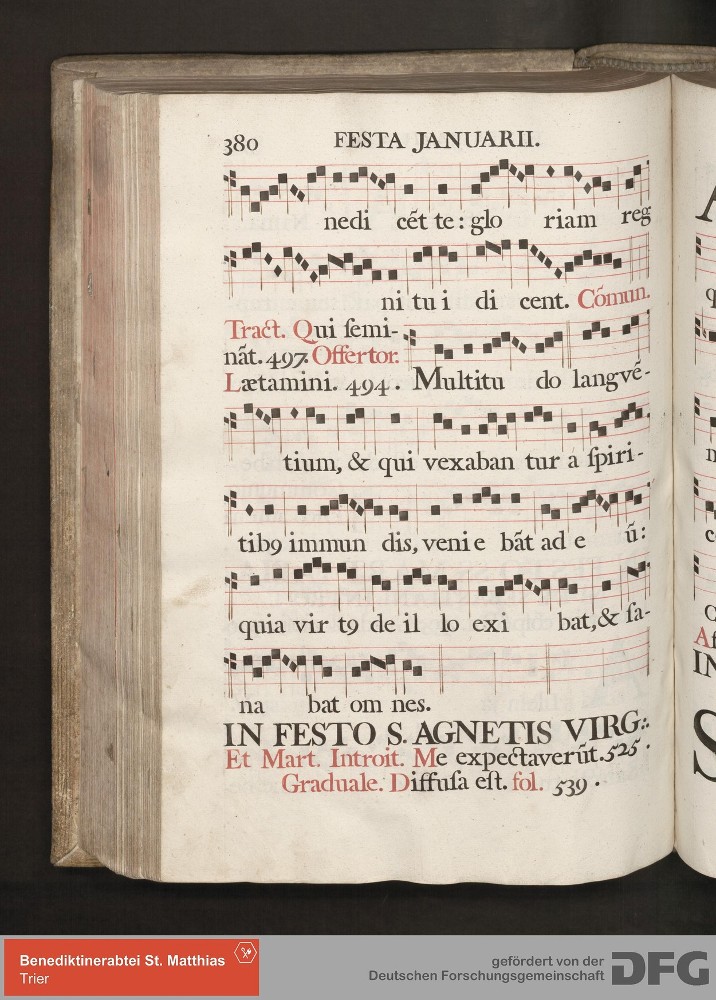 380 FESTA JANUARII.
nedi cẽt te: glo riam reg
ni tu i di cent. Cõmun.
Tract. Qui ſemi-
nãt. 497. Offertor.
Lætamini. 494. Multitu do langvẽ-
tium, & qui vexaban tur a ſpiri-
tib9 immun dis, veni e bãt ad e ũ:
quia vir t9 de il lo exi bat, & ſa-
na bat om nes.
IN FESTO S. AGNETIS VIRG:.
Et Mart. Introit. Me expectaverũt. 525.
Graduale. Diffuſa eſt. fol. 539.
Benediktinerabtei St. Matthias
Trier
gefördert von der
Deutschen Forschungsgemeinschaft DFG